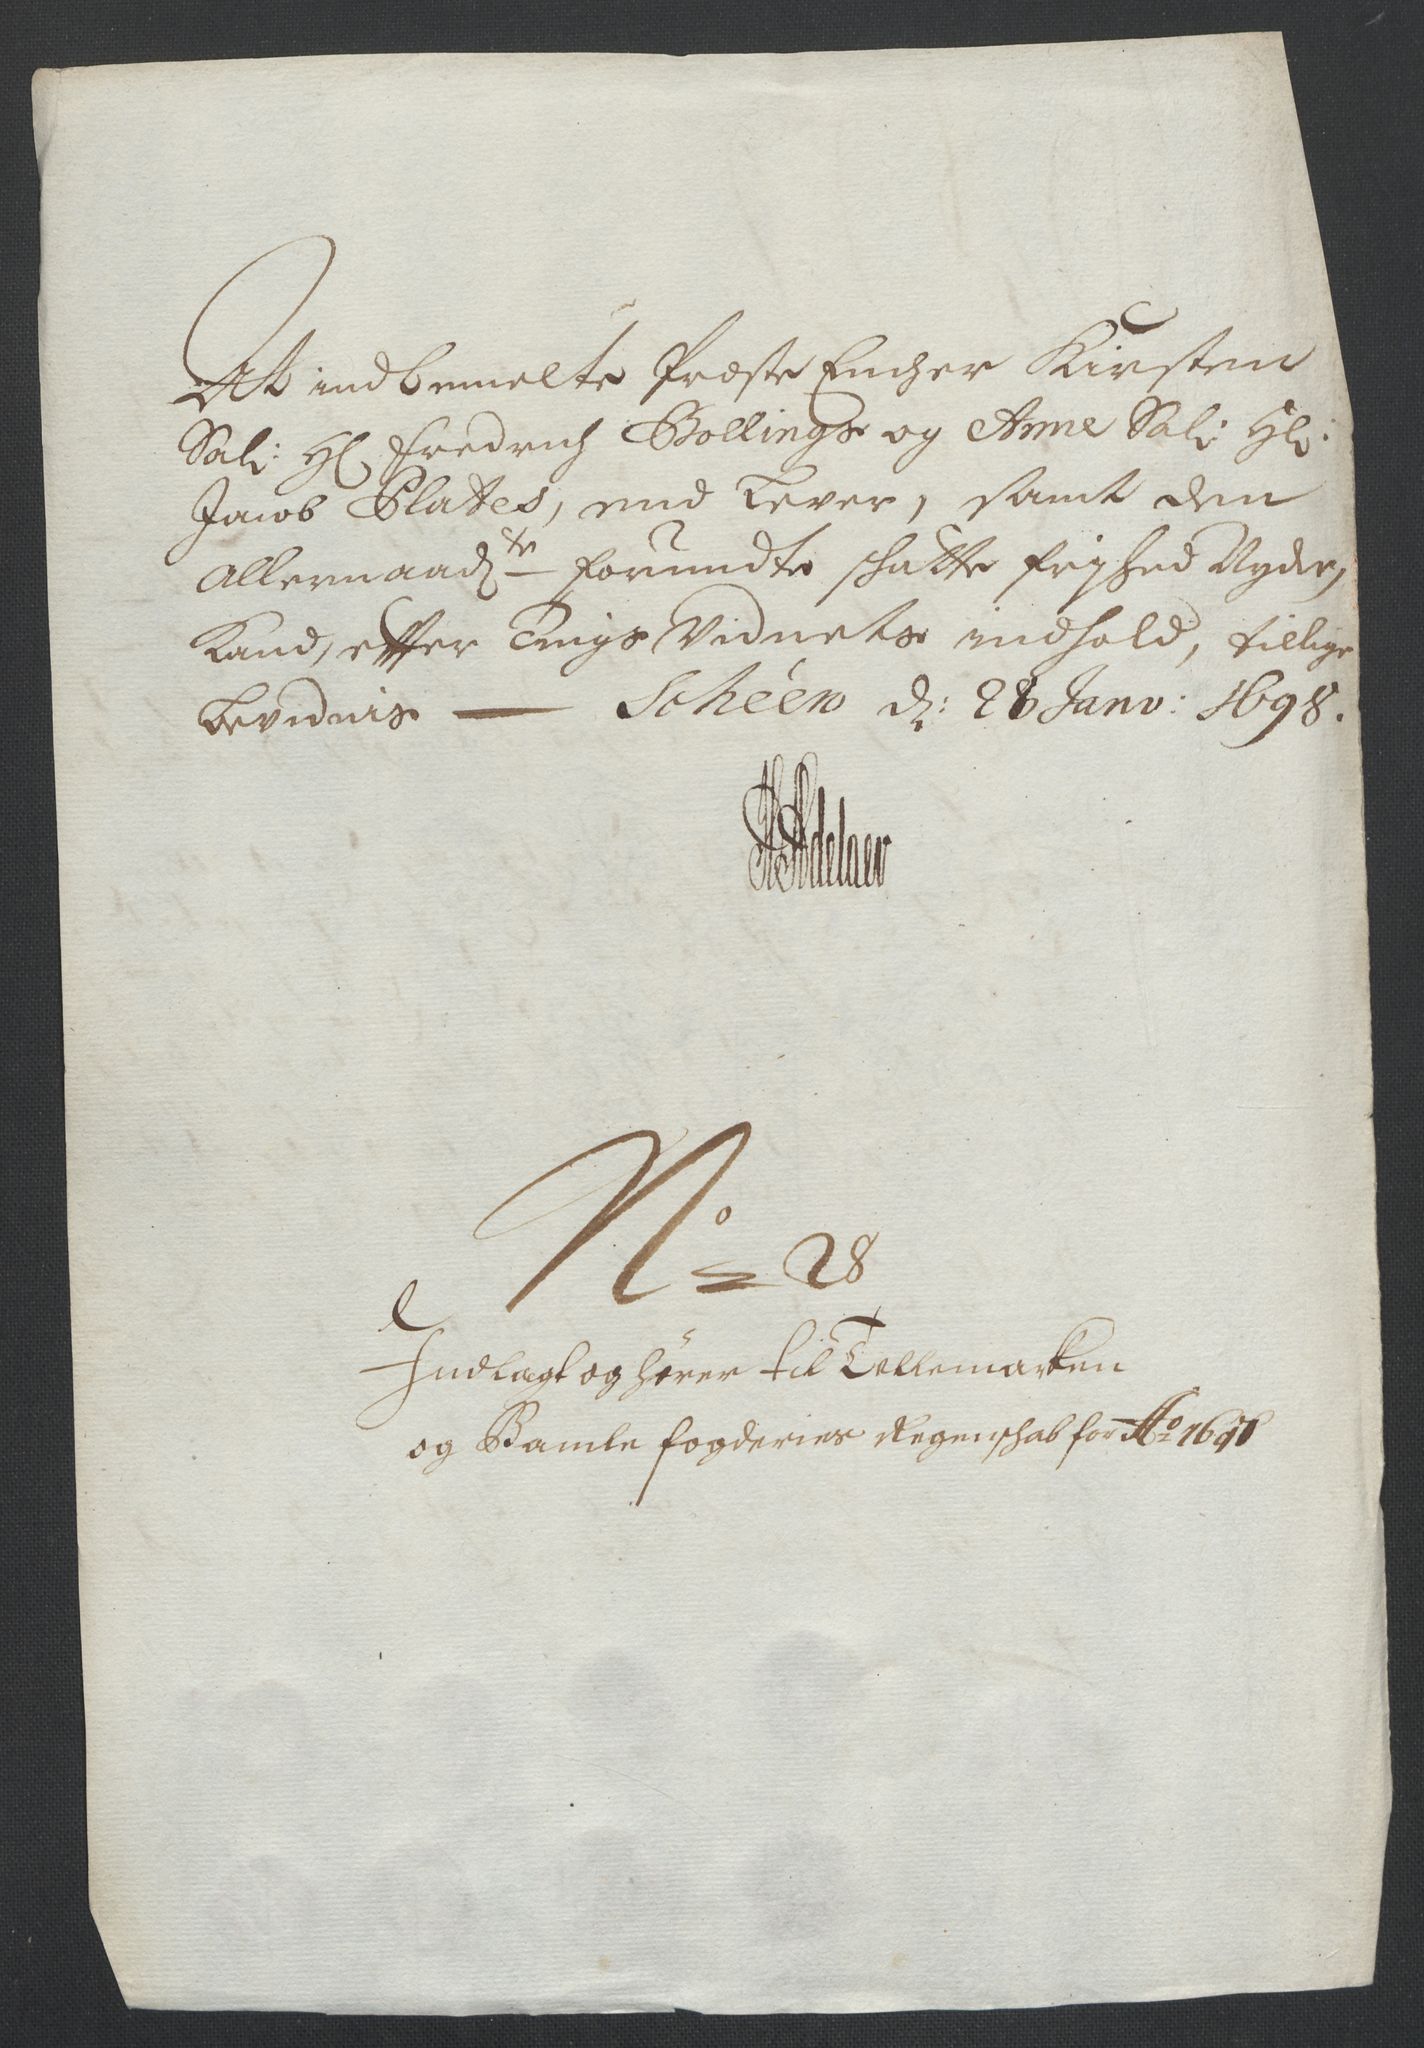 At indbemelte Præste Encher Kirsten
Sal: Hl Fredrich Bollings og Anne Sal: Hl:
Jacob Plates, end Lever, samt den
Allernaad ste forundte schatte frjhed Nyder,
Kand, effter Tings Vidnets indhold, tillige
Bevidnis — Schéen d: 28 Janv: 1698.
HAdelaer
No 28
Indlagt og hører til Tellemarken
og Bamle fogderies Regenschab for Ao